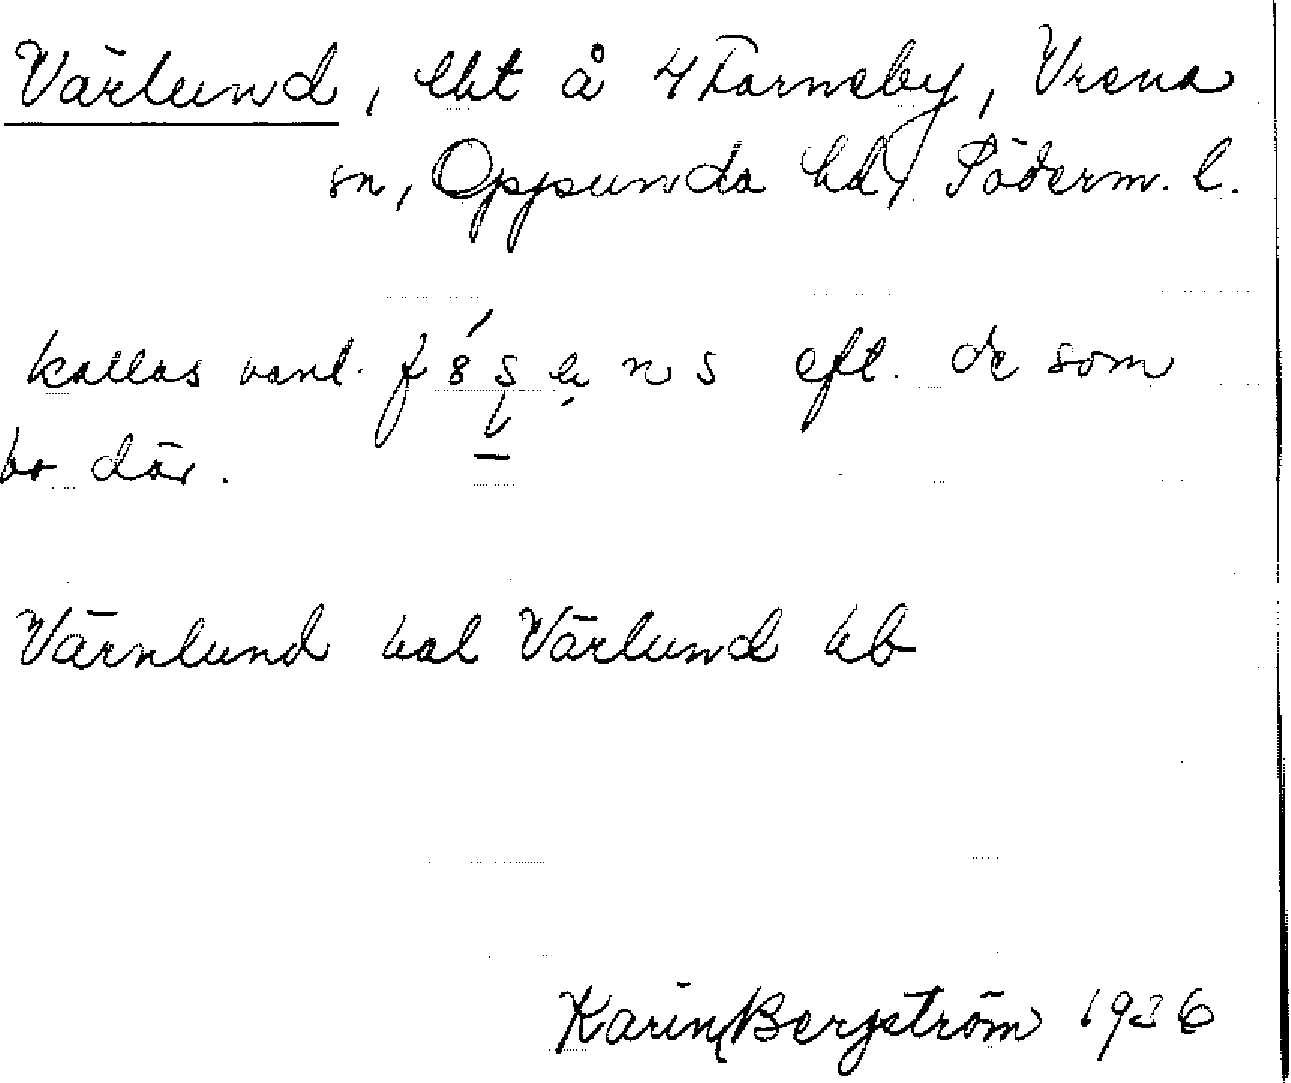 Värlund, lht å 4 Tarneby, Vrena
sn, Oppunda hd, Söderm. l.
kallas vanl. eft. de som
bo där.
Värnlund hal Värlund hb
Karin Bergström 1936